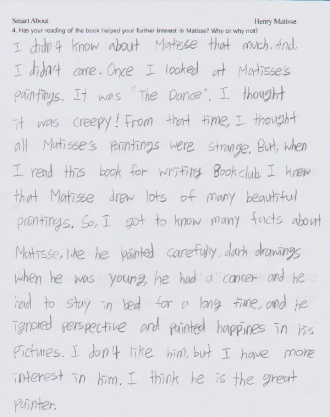 Smart About Henry Matisse
4. Has your reading of the book helped your further interest in Matisse? Why or why not?
I didn't know about Matisse that much. And,
I didn't care. Once I looked at Matisse's
paintings. It was "The Dance". I thought
it was creepy! From that time, I thought
all Matisse's paintings were strange. But, when
I read this book for writing Bookclub I knew
that Matisse drew lots of many beautiful
paintings. So, I got to know many facts about
Matisse, like he painted carefully, dark drawings
when he was young, he had a cancer and he
had to stay in bed for a long time, and he
ignored perspective and painted happines in his
pictures. I don't like him, but I have more
interest in him. I think he is the great
painter.